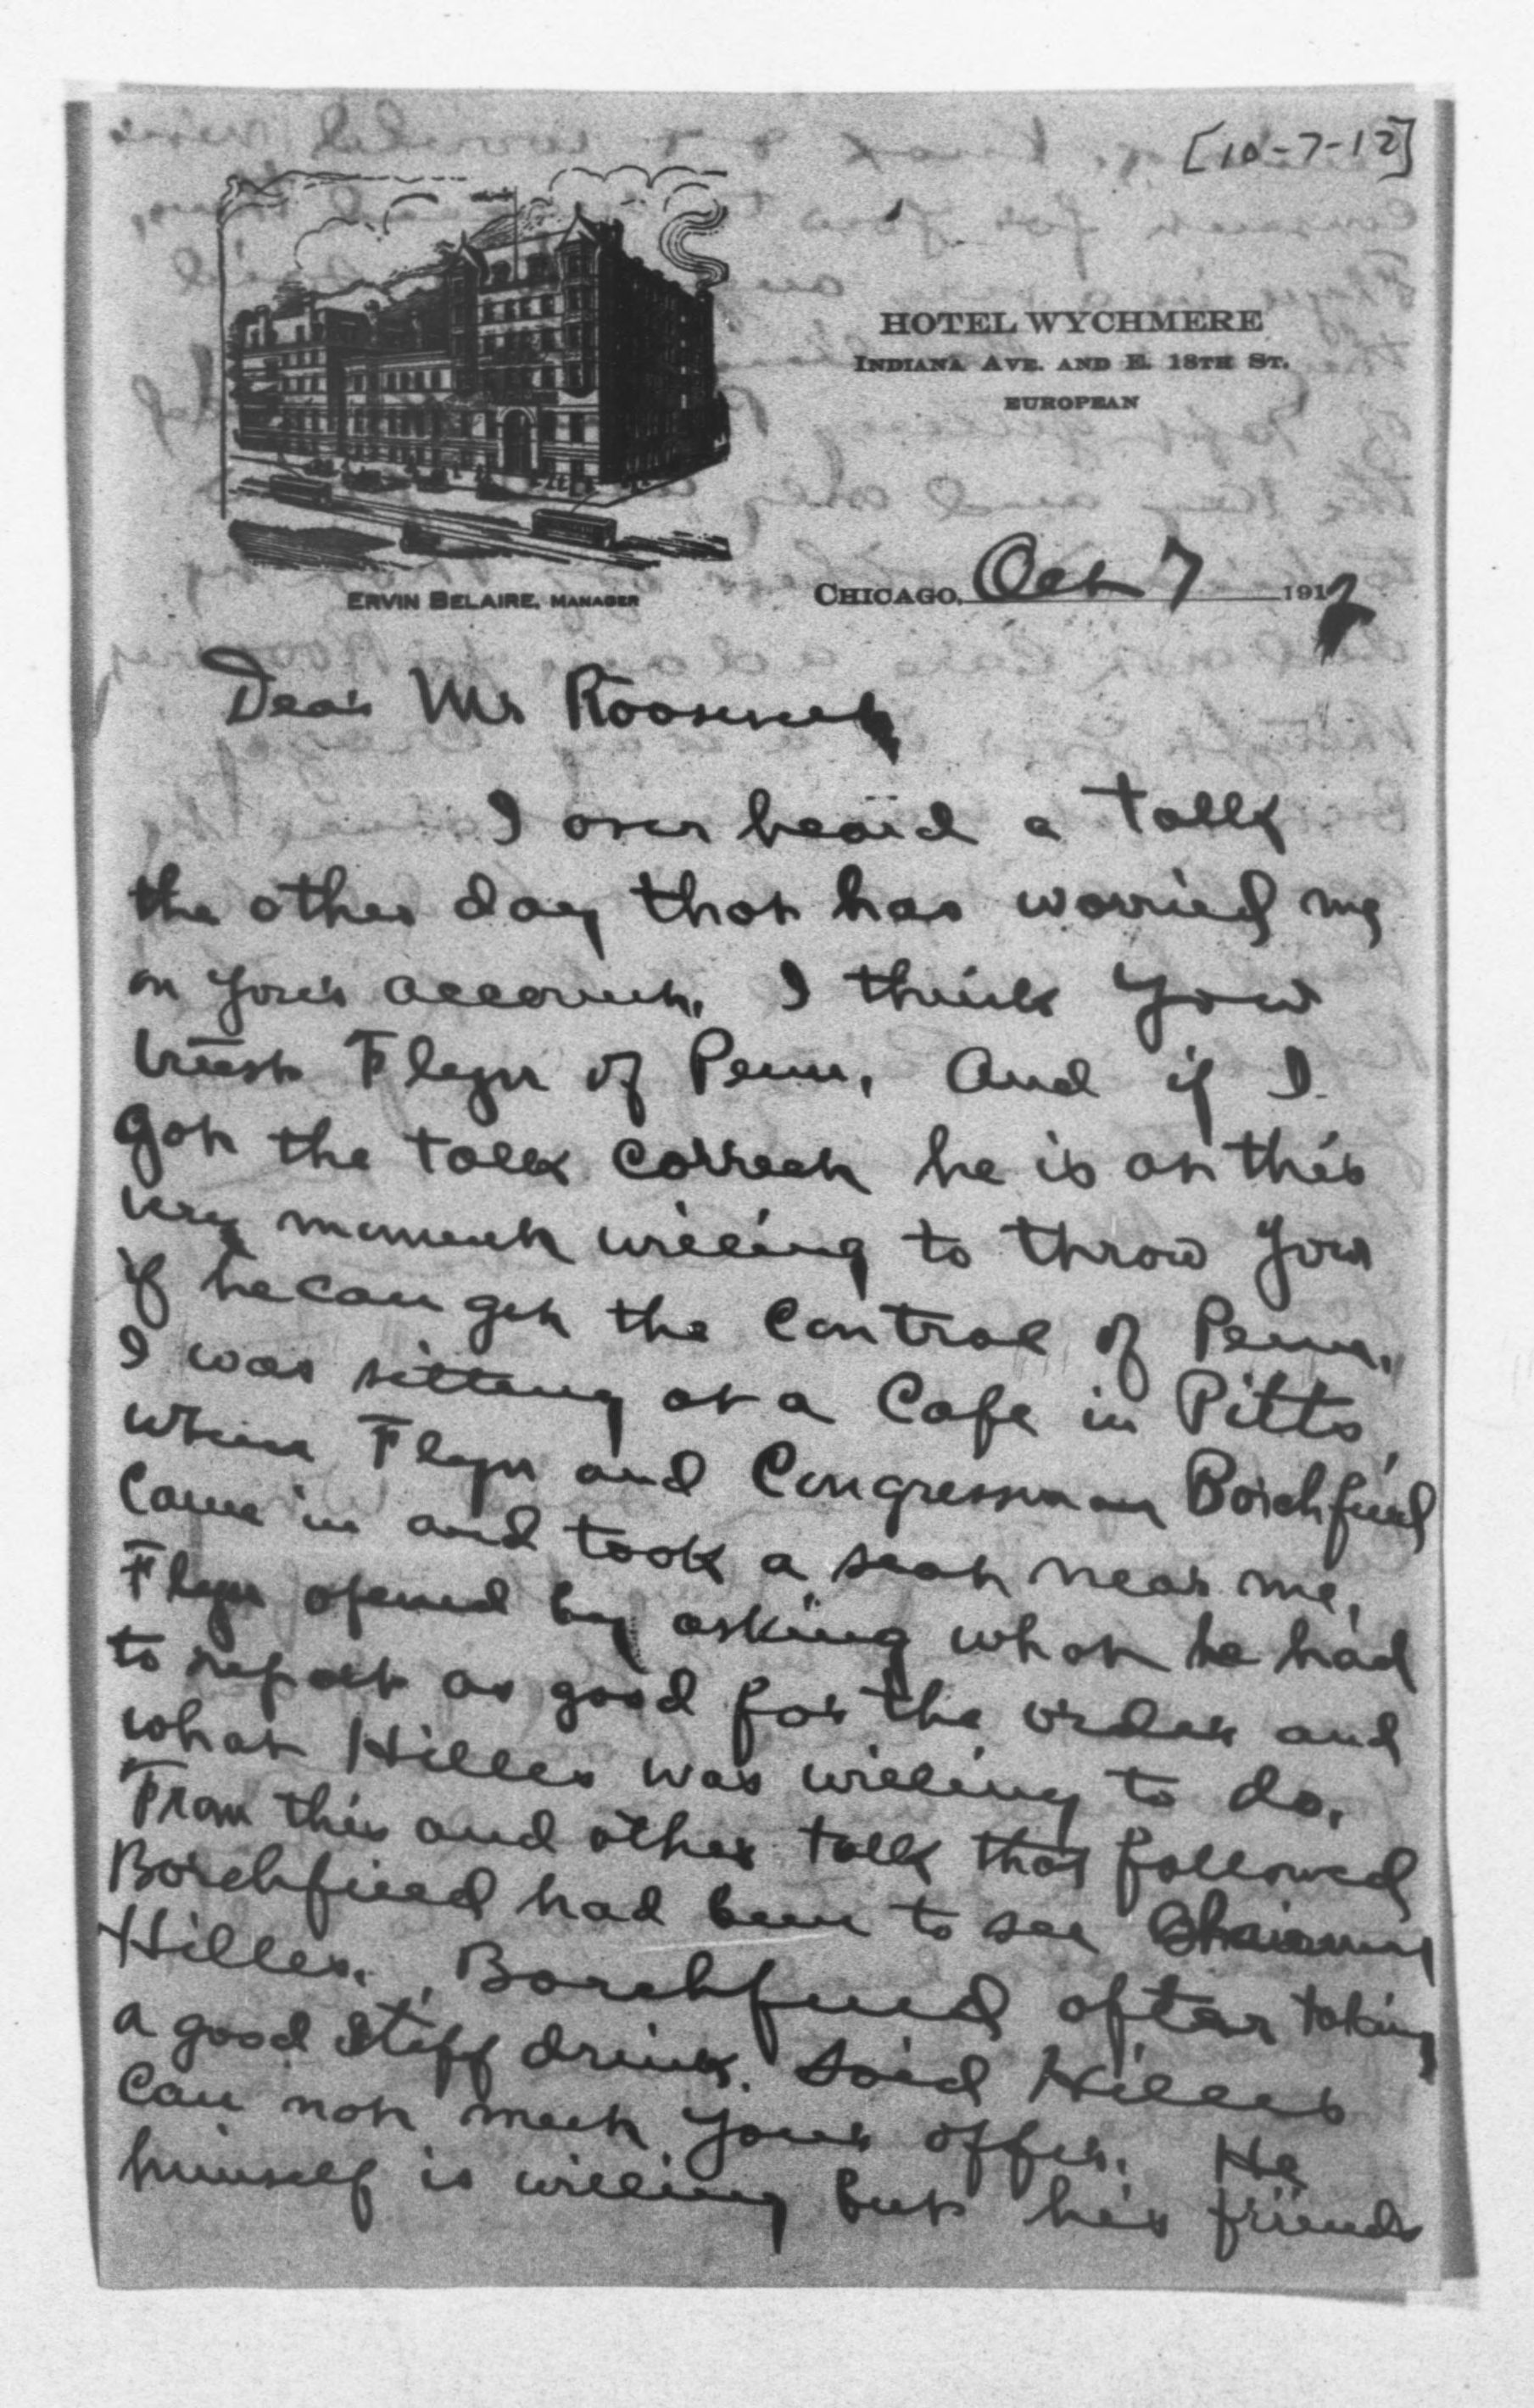 [10-7-12]
HOTEL WYCHMERE
INDIANA AVE. AND E. 18TH ST.
EUROPEAN
ERVIN BELAIRE, MANAGER
CHICAGO, Oct 7 1912
Dear Mr Roosevelt
I over heard a talk
the other day that has worried me
on your account. I think you
trust Flynn of Penn. And if I
got the talk correct he is at this
very moment willing to throw you
if he can get the control of Penn.
I was sitting at a Cafe in Pitts,
when Flynn and Congressman Borchfield
came in and took a seat near me,
Flynn opened by asking what he had
to report as good for the order and
what Hilles was willing to do.
From this and other talk that followed
Borchfield had been to see Chairman
Hilles. Borchfield after taking
a good stiff drink. Said Hilles
can not meet your offer. He
himself is willing but his friends